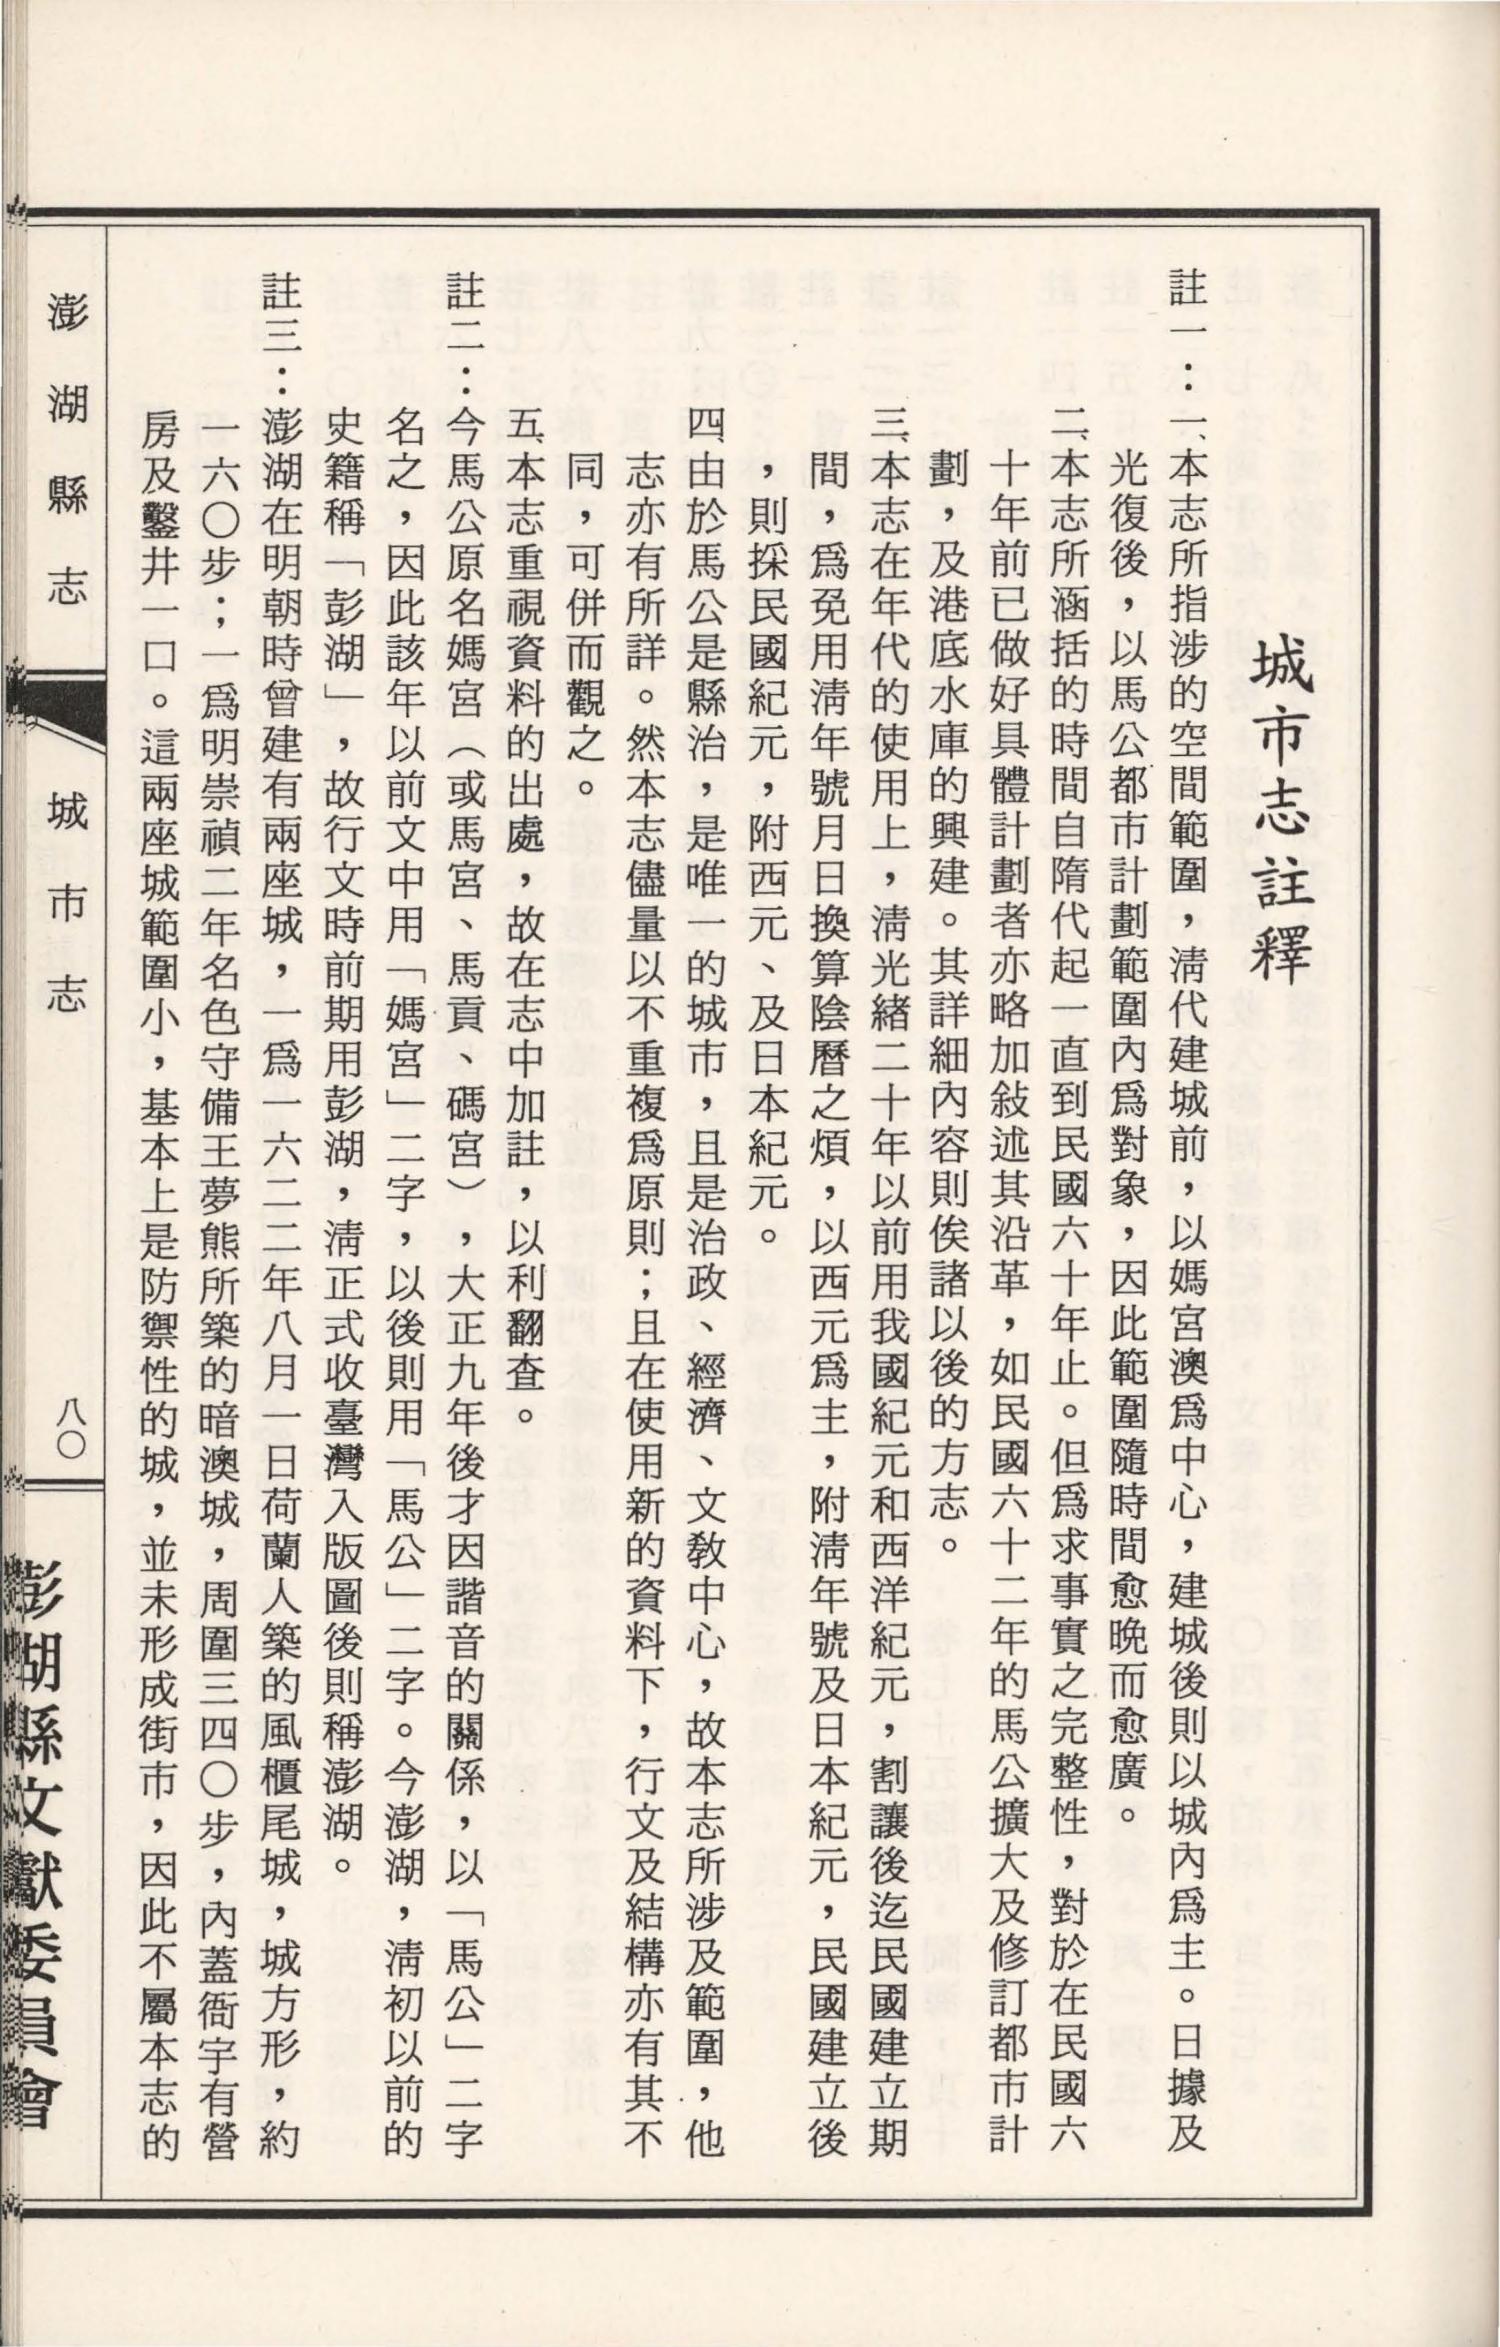 城市志註釋
註一：一、本志所指涉的空間範圍，淸代建城前，以媽宮澳爲中心，建城後則以城內爲主。日據及
光復後，以馬公都市計劃範圍內爲對象，因此範圍隨時間愈晚而愈廣。
二、本志所涵括的時間自隋代起一直到民國六十年止。但爲求事實之完整性，對於在民國六
十年前已做好具體計劃者亦略加敍述其沿革，如民國六十二年的馬公擴大及修訂都市計
劃，及港底水庫的興建。其詳細內容則俟諸以後的方志。
三、本志在年代的使用上，淸光緒二十年以前用我國紀元和西洋紀元，割讓後迄民國建立期
間，爲免用淸年號月日換算陰曆之煩，以西元爲主，附淸年號及日本紀元，民國建立後
，則採民國紀元，附西元、及日本紀元。
四、由於馬公是縣治，是唯一的城市，且是治政、經濟、文敎中心，故本志所涉及範圍，他
志亦有所詳。然本志儘量以不重複爲原則；且在使用新的資料下，行文及結構亦有其不
同，可併而觀之。
五、本志重視資料的出處，故在志中加註，以利翻查。
註二：今馬公原名媽宮（或馬宮、馬貢、碼宮），大正九年後才因諧音的關係，以「馬公」二字
名之，因此該年以前文中用「媽宮」二字，以後則用「馬公」二字。今澎湖，淸初以前的
史籍稱「彭湖」，故行文時前期用彭湖，淸正式收臺灣入版圖後則稱澎湖。
註三：澎湖在明朝時曾建有兩座城，一爲一六二二年八月一日荷蘭人築的風櫃尾城，城方形，約
一六〇步；一爲明崇禎二年名色守備王夢熊所築的暗澳城，周圍三四〇步，內蓋衙宇有營
房及鑿井一口。這兩座城範圍小，基本上是防禦性的城，並未形成街市，因此不屬本志的
澎湖縣志
城市志
八〇
澎湖縣文獻委員會